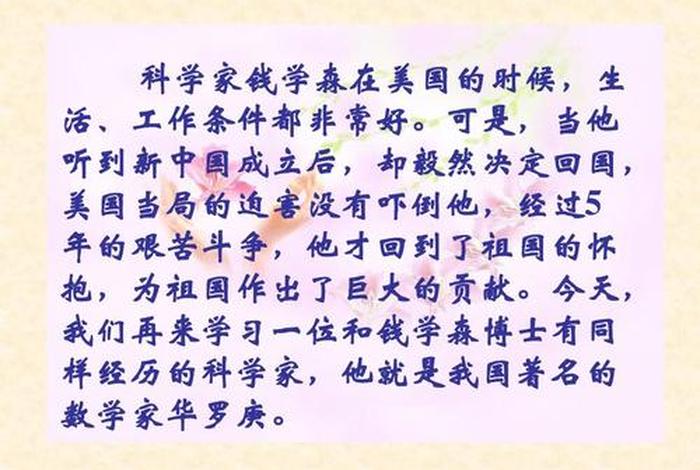 科学家钱学森在美国的时候，生
活、工作条件都非常好。可是，当他
听到新中国成立后，却毅然决定回国，
美国当局的迫害没有吓倒他，经过5
年的艰苦斗争，他才回到了祖国的怀
抱，为祖国作出了巨大的贡献。今天，
我们再来学习一位和钱学森博士有同
样经历的科学家，他就是我国著名的
数学家华罗庚。